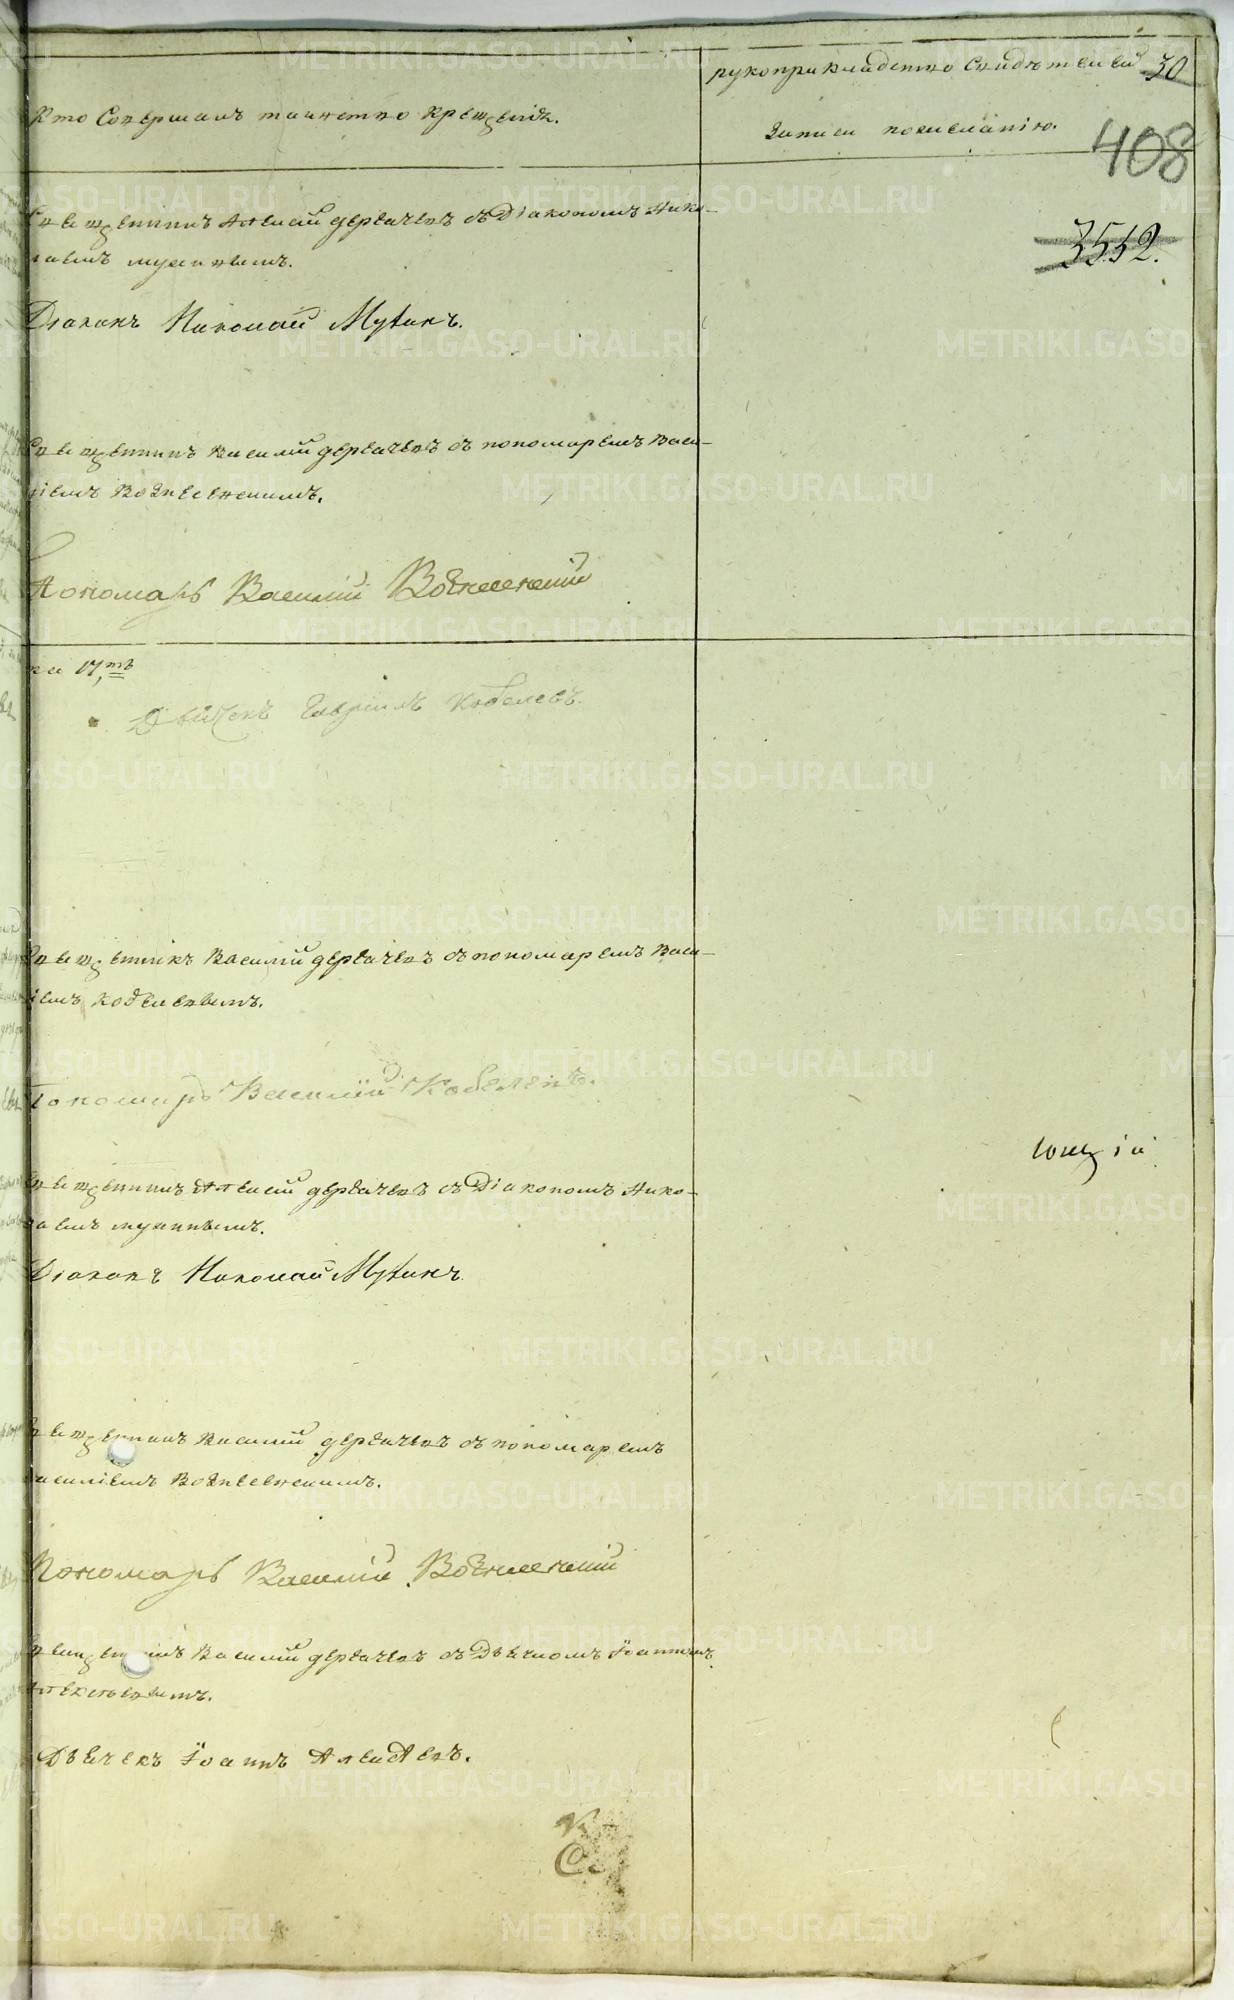 Кто Совершалъ таинство крещенія.
рукоприкладство Свидѣтелей 30
записи по желанію.
408
Священникъ Алексій Дергачевъ съ Діакономъ Нико-
лаемъ Мутинымъ.
3512.
Діаконъ Николай Мутинъ.
Священникъ Василій Дергачевъ съ пономаремъ Васи-
ліемъ Вознесенскимъ.
Пономарь Василій Вознесенскій
на 17,тъ
Дьячекъ Гавріилъ Кобелевъ.
Священникъ Василій Дергачевъ съ пономаремъ Васи-
ліемъ Кобелевымъ.
Пономарь Василій Кобелевъ.
Священникъ Алексій Дергачевъ съ Діакономъ Нико-
лаемъ Мутинымъ.
Діаконъ Николай Мутинъ
Священникъ Василій Дергачевъ съ пономаремъ
Василіемъ Вознесенскимъ.
Пономарь Василій Вознесенскій
Священникъ Василій Дергачевъ съ Дьячкомъ Іоанномъ
Дьячекъ Іоаннъ